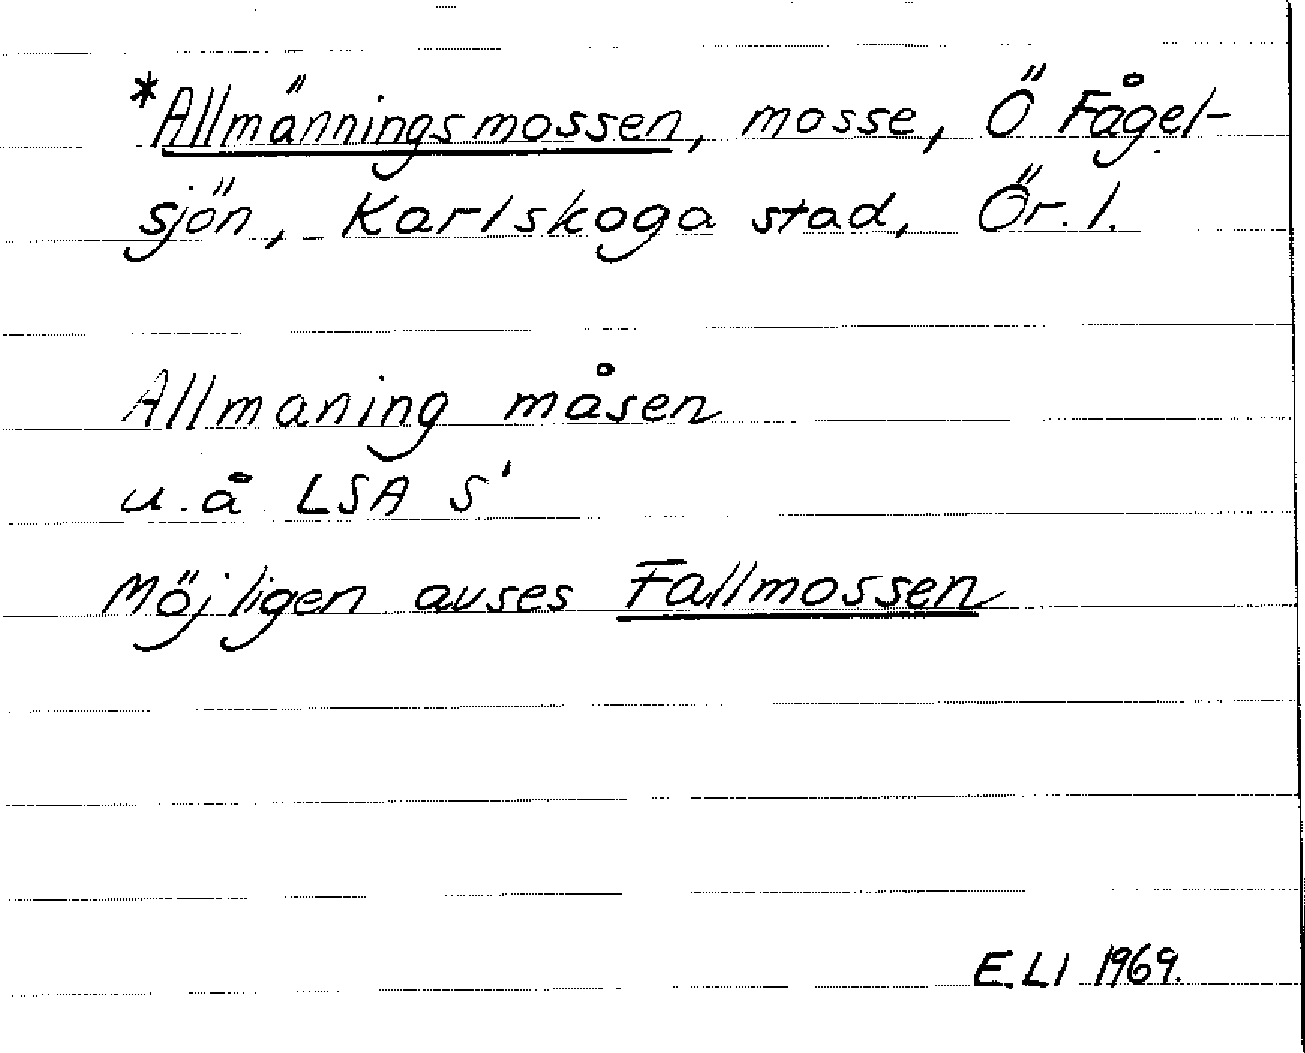 *Allmänningsmossen, mosse, Ö Fågel-
sjön, Karlskoga stad, Ör. l.
Allmaning måsen
u. å LSA S'
Möjligen avses Fallmossen
E.LI 1969.